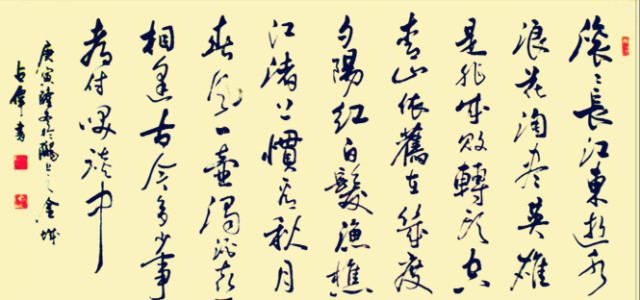 滚〻長江東逝水
浪花淘尽英雄
是非成敗轉头空
青山依舊在幾度
夕陽紅白髮漁樵
江渚上慣看秋月
春风一壺濁酒喜
相逢古今多少事
都付笑談中
庚寅
書